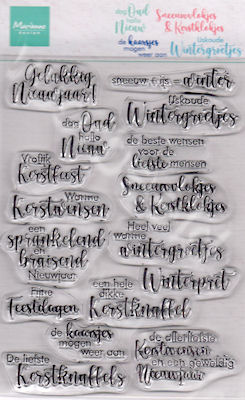 Marianne
Design
dag Oud
hallo
Nieuw
Sneeuwvlokjes
& Kerstklokjes
de kaarsjes
mogen
weer aan
IJskoude
Wintergroetjes
Gelukkig
Nieuwjaar!
sneeuw + ijs = winter
dag Oud
hallo
Nieuw
IJskoude
Wintergroetjes
Vrolijk
Kerstfeest
de beste wensen
voor de
liefste mensen
Warme
Kerstwensen
Sneeuwvlokjes
& Kerstklokjes
een
sprankelend
en
bruisend
Nieuwjaar
Heel veel
warme
wintergroetjes
Winterpret
Fijne
Feestdagen
een hele
dikke
Kerstknuffel
de kaarsjes
mogen
weer aan
de allerliefste
Kerstwensen
en een geweldig
Nieuwjaar
De liefste
Kerstknuffels